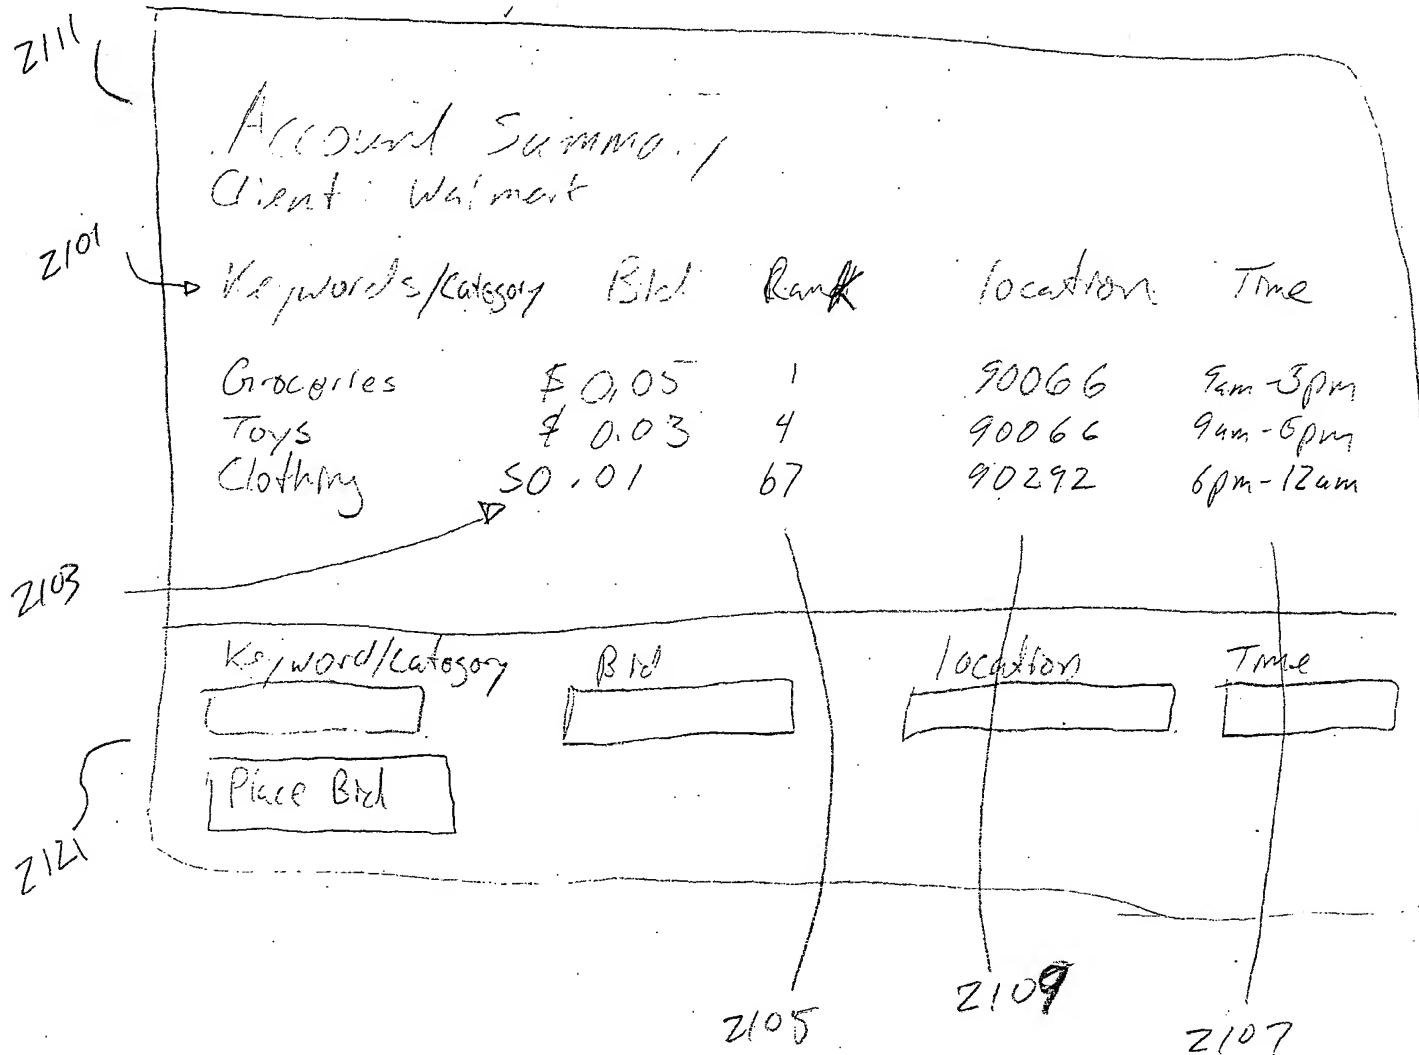 2111
Account Summary
Client: Walmart
2101
Keywords/Category Bid Rank location Time
Groceries $0.05 1 90066 9am-3pm
Toys $0.03 4 90066 9am-6pm
Clothing $0.01 67 90292 6pm-12am
2103
Keyword/Category Bid location Time
Place Bid
2121
2105 2109 2107